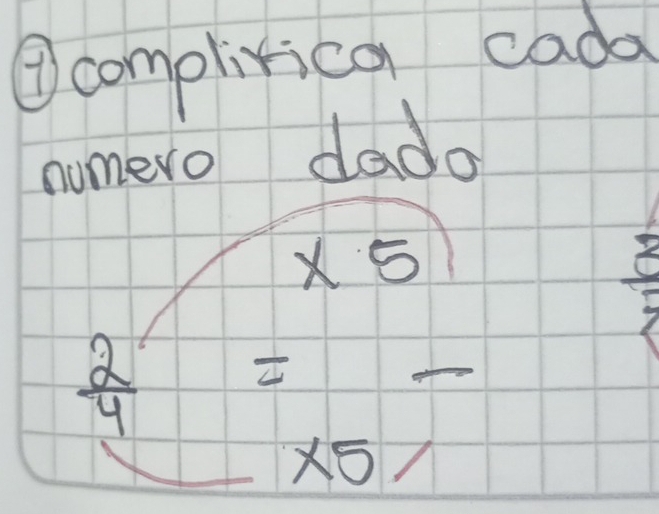 ① complirica cada
numero dado
x 5
2/4 = —
x5